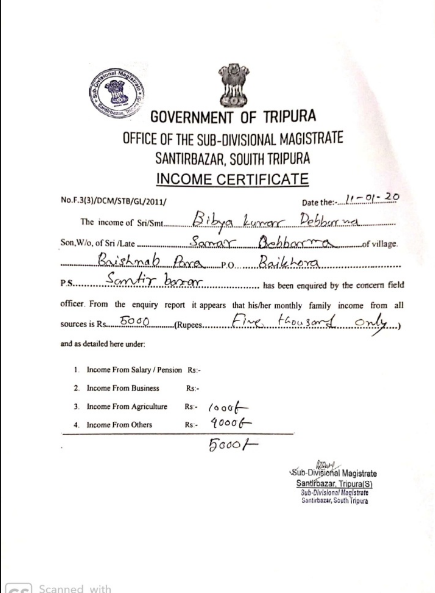 GOVERNMENT OF TRIPURA
OFFICE OF THE SUB-DIVISIONAL MAGISTRATE
SANTIRBAZAR, SOUITH TRIPURA
INCOME CERTIFICATE
No.F.3(3)/DCM/STB/GL/2011/ Date the:-....11-01-20
The income of Sri/Smt. Bibya kumar Debbarma
Son,W/o, of Sri /Late Samar Debbarma of village
Baishnab Para P.O Baikhora
P.S. Santir bazar has been enquired by the concern field
officer. From the enquiry report it appears that his/her monthly family income from all
sources is Rs. 5000 (Rupees. Five thousand only.)
and as detailed here under:
1. Income From Salary / Pension Rs:-
2. Income From Business Rs:-
3. Income From Agriculture Rs:- 1000/-
4. Income From Others Rs:- 4000/-
5000/-
Sub-Divisional Magistrate
Santirbazar, Tripura(S)
Sub-Divisional Magistrate
Santirbazar, South Tripura
Scanned with